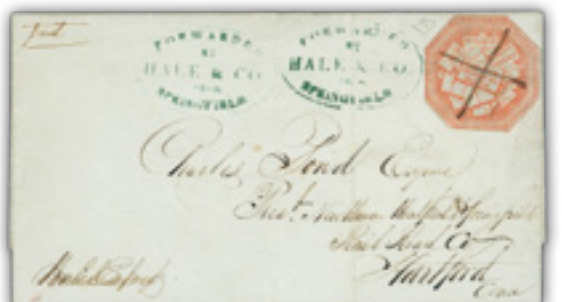 Paid
FORWARDED
BY
HALE & CO
FROM
SPRINGFIELD
FORWARDED
BY
HALE & CO
FROM
SPRINGFIELD
Charles Pond Esquire
Prest. New Haven Hartford & Springfield
Rail Road Co
Hartford
Conn